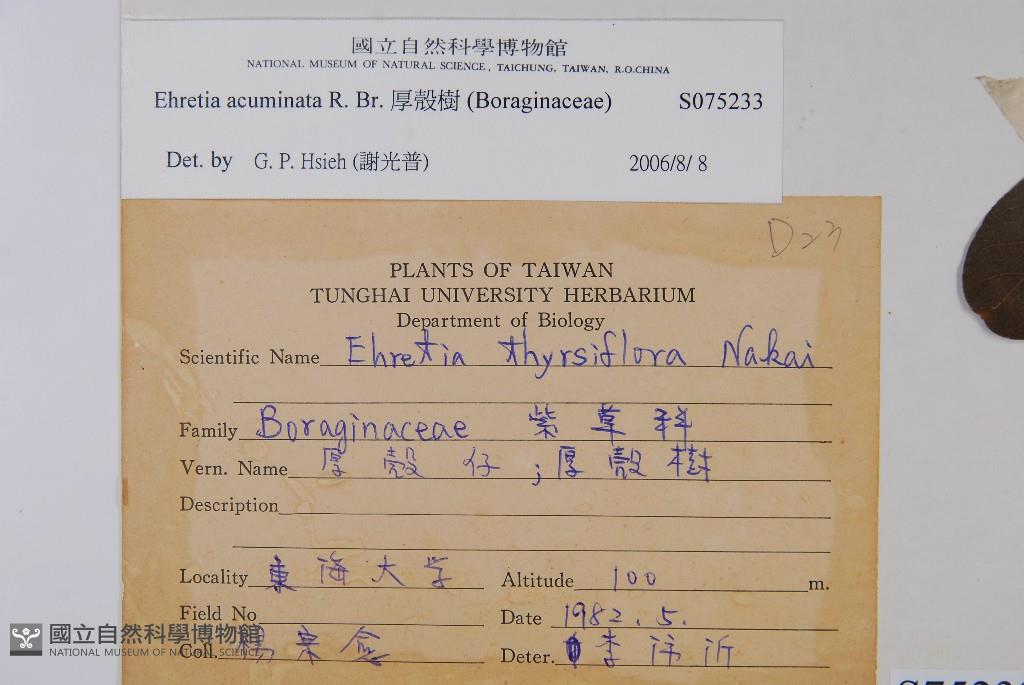 國立自然科學博物館
NATIONAL MUSEUM OF NATURAL SCIENCE, TAICHUNG, TAIWAN, R.O.CHINA
Ehretia acuminata R. Br. 厚殼樹 (Boraginaceae) S075233
Det. by G. P. Hsieh (謝光普) 2006/8/ 8
D23
PLANTS OF TAIWAN
TUNGHAI UNIVERSITY HERBARIUM
Department of Biology
Scientific Name Ehretia thyrsiflora Nakai
Family Boraginaceae 紫草科
Vern. Name 厚殼仔;厚殼樹
Description
Locality 東海大学 Altitude 100 m.
Field No Date 1982.5.
Coll. 楊宗愈 Deter. 李
國立自然科學博物館
NATIONAL MUSEUM OF NATURAL SCIENCE